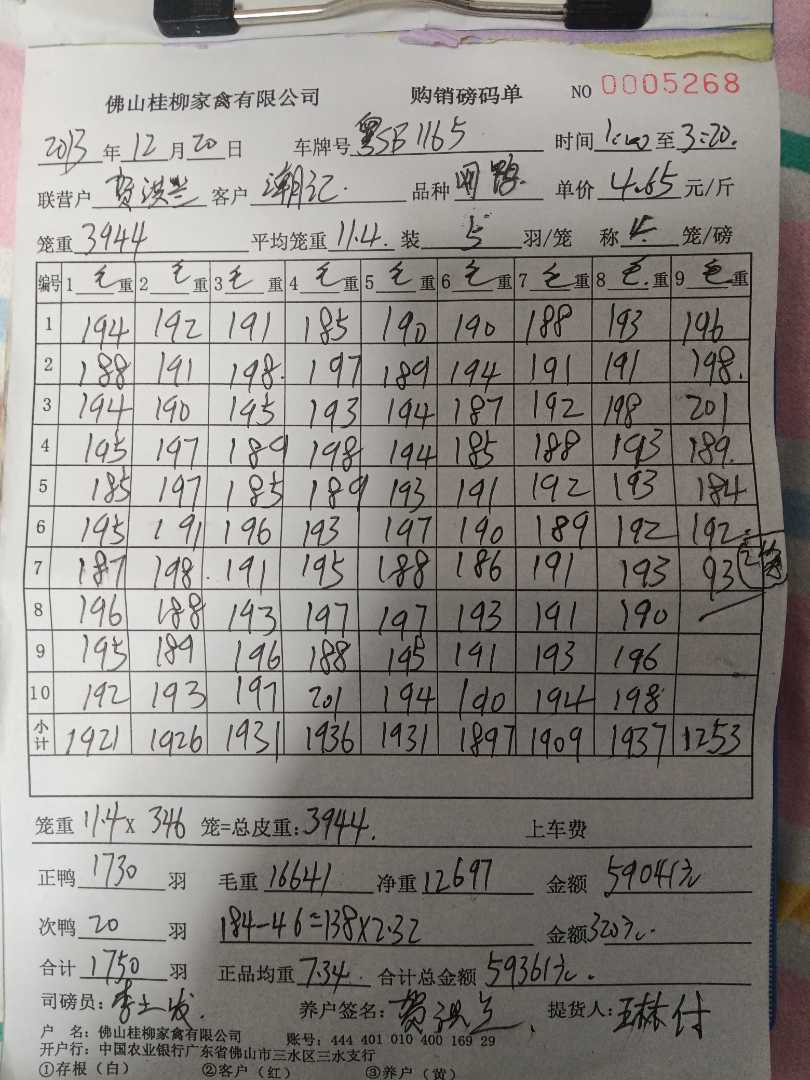 佛山桂柳家禽有限公司 购销磅码单 NO 0005268
2013年12月20日 车牌号粤SB1165 时间 至3:20.
联营户贺洪兰 客户潮记. 品种 单价4.65元/斤
笼重3944 平均笼重11.4. 装5羽/笼 称4笼/磅
编号 1毛重 2毛重 3毛重 4毛重 5毛重 6毛重 7毛重 8毛重 9毛重
1 194 192 191 185 190 190 188 193 196
2 188 191 198. 197 189 194 191 191 198.
3 194 190 195 193 194 187 192 198 201
4 195 197 189 198 194 185 188 193 189.
5 185 197 185 189 193 191 192 193 184
6 195 191 196 193 197 190 189 192 192
7 187 198. 191 195 188 186 191 193 93 2笼
8 196 188 193 197 197 193 191 190
9 195 189 196 188 195 191 193 196
10 192 193 197 201 194 190 194 198
小计 1921 1926 1931 1936 1931 1897 1909 1937 1253
笼重11.4X 346笼=总皮重:3944. 上车费
正鸭1730羽 毛重16641 净重12697 金额59041元
次鸭20羽 184-46=138X2.32 金额320元.
合计1750羽 正品均重7.34 合计总金额59361元.
司磅员:李土发. 养户签名:贺洪兰. 提货人:
户 名:佛山桂柳家禽有限公司 账号:444 401 010 400 169 29
开户行:中国农业银行广东省佛山市三水区三水支行
①存根(白) ②客户(红) ③养户(黄)